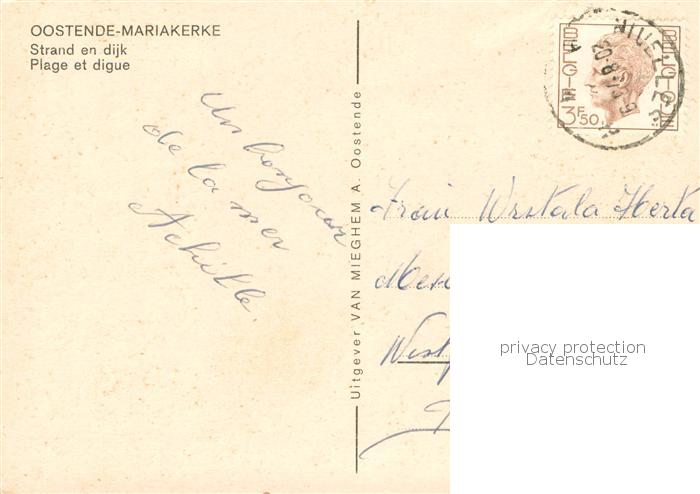 OOSTENDE-MARIAKERKE
Strand en dijk
Plage et digue
Un bonjour
de la mer
Achille.
Uitgever VAN MIEGHEM A. Oostende
BELGIE BELGIQUE
3F50
NIVELLES
Frau Wrstala Herta
privacy protection
Datenschutz